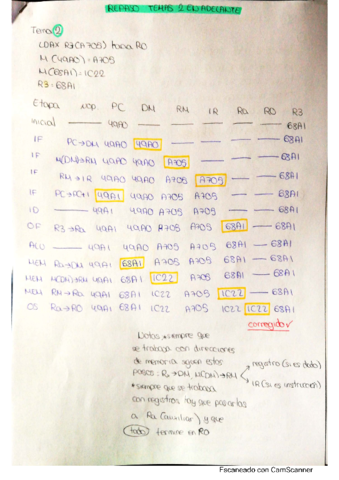 REPASO TEMAS 2 EN ADELANTE
Tema 2
LDAX R3 (A705) hacia R0
M (49A0) = A705
M (68A1) = 1C22
R3 = 68A1
Etapa μop. PC DM RM IR Ra R0 R3
Inicial — 49A0 — — — — — 68A1
IF PC→DM 49A0 49A0 — — — — 68A1
IF M(DM)→RM 49A0 49A0 A705 — — — 68A1
IF RM→IR 49A0 49A0 A705 A705 — — 68A1
IF PC→PC+1 49A1 49A0 A705 A705 — — 68A1
ID — 49A1 49A0 A705 A705 — — 68A1
OF R3→Ra 49A1 49A0 A705 A705 68A1 — 68A1
ALU — 49A1 49A0 A705 A705 68A1 — 68A1
MEM Ra→DM 49A1 68A1 A705 A705 68A1 — 68A1
MEM M(DM)→RM 49A1 68A1 1C22 A705 68A1 — 68A1
MEM RM→Ra 49A1 68A1 1C22 A705 1C22 — 68A1
OS Ra→R0 49A1 68A1 1C22 A705 1C22 1C22 68A1
corregido ✓
Notas *siempre que
se trabaja con direcciones
de memoria siguen estos
pasos: Ra→DM, M(DM)→RM
registro (si es dato)
IR (si es instrucción)
*siempre que se trabaja
con registros hay que pasarlos
a Ra (auxiliar) y que
todo termine en R0
Escaneado con CamScanner